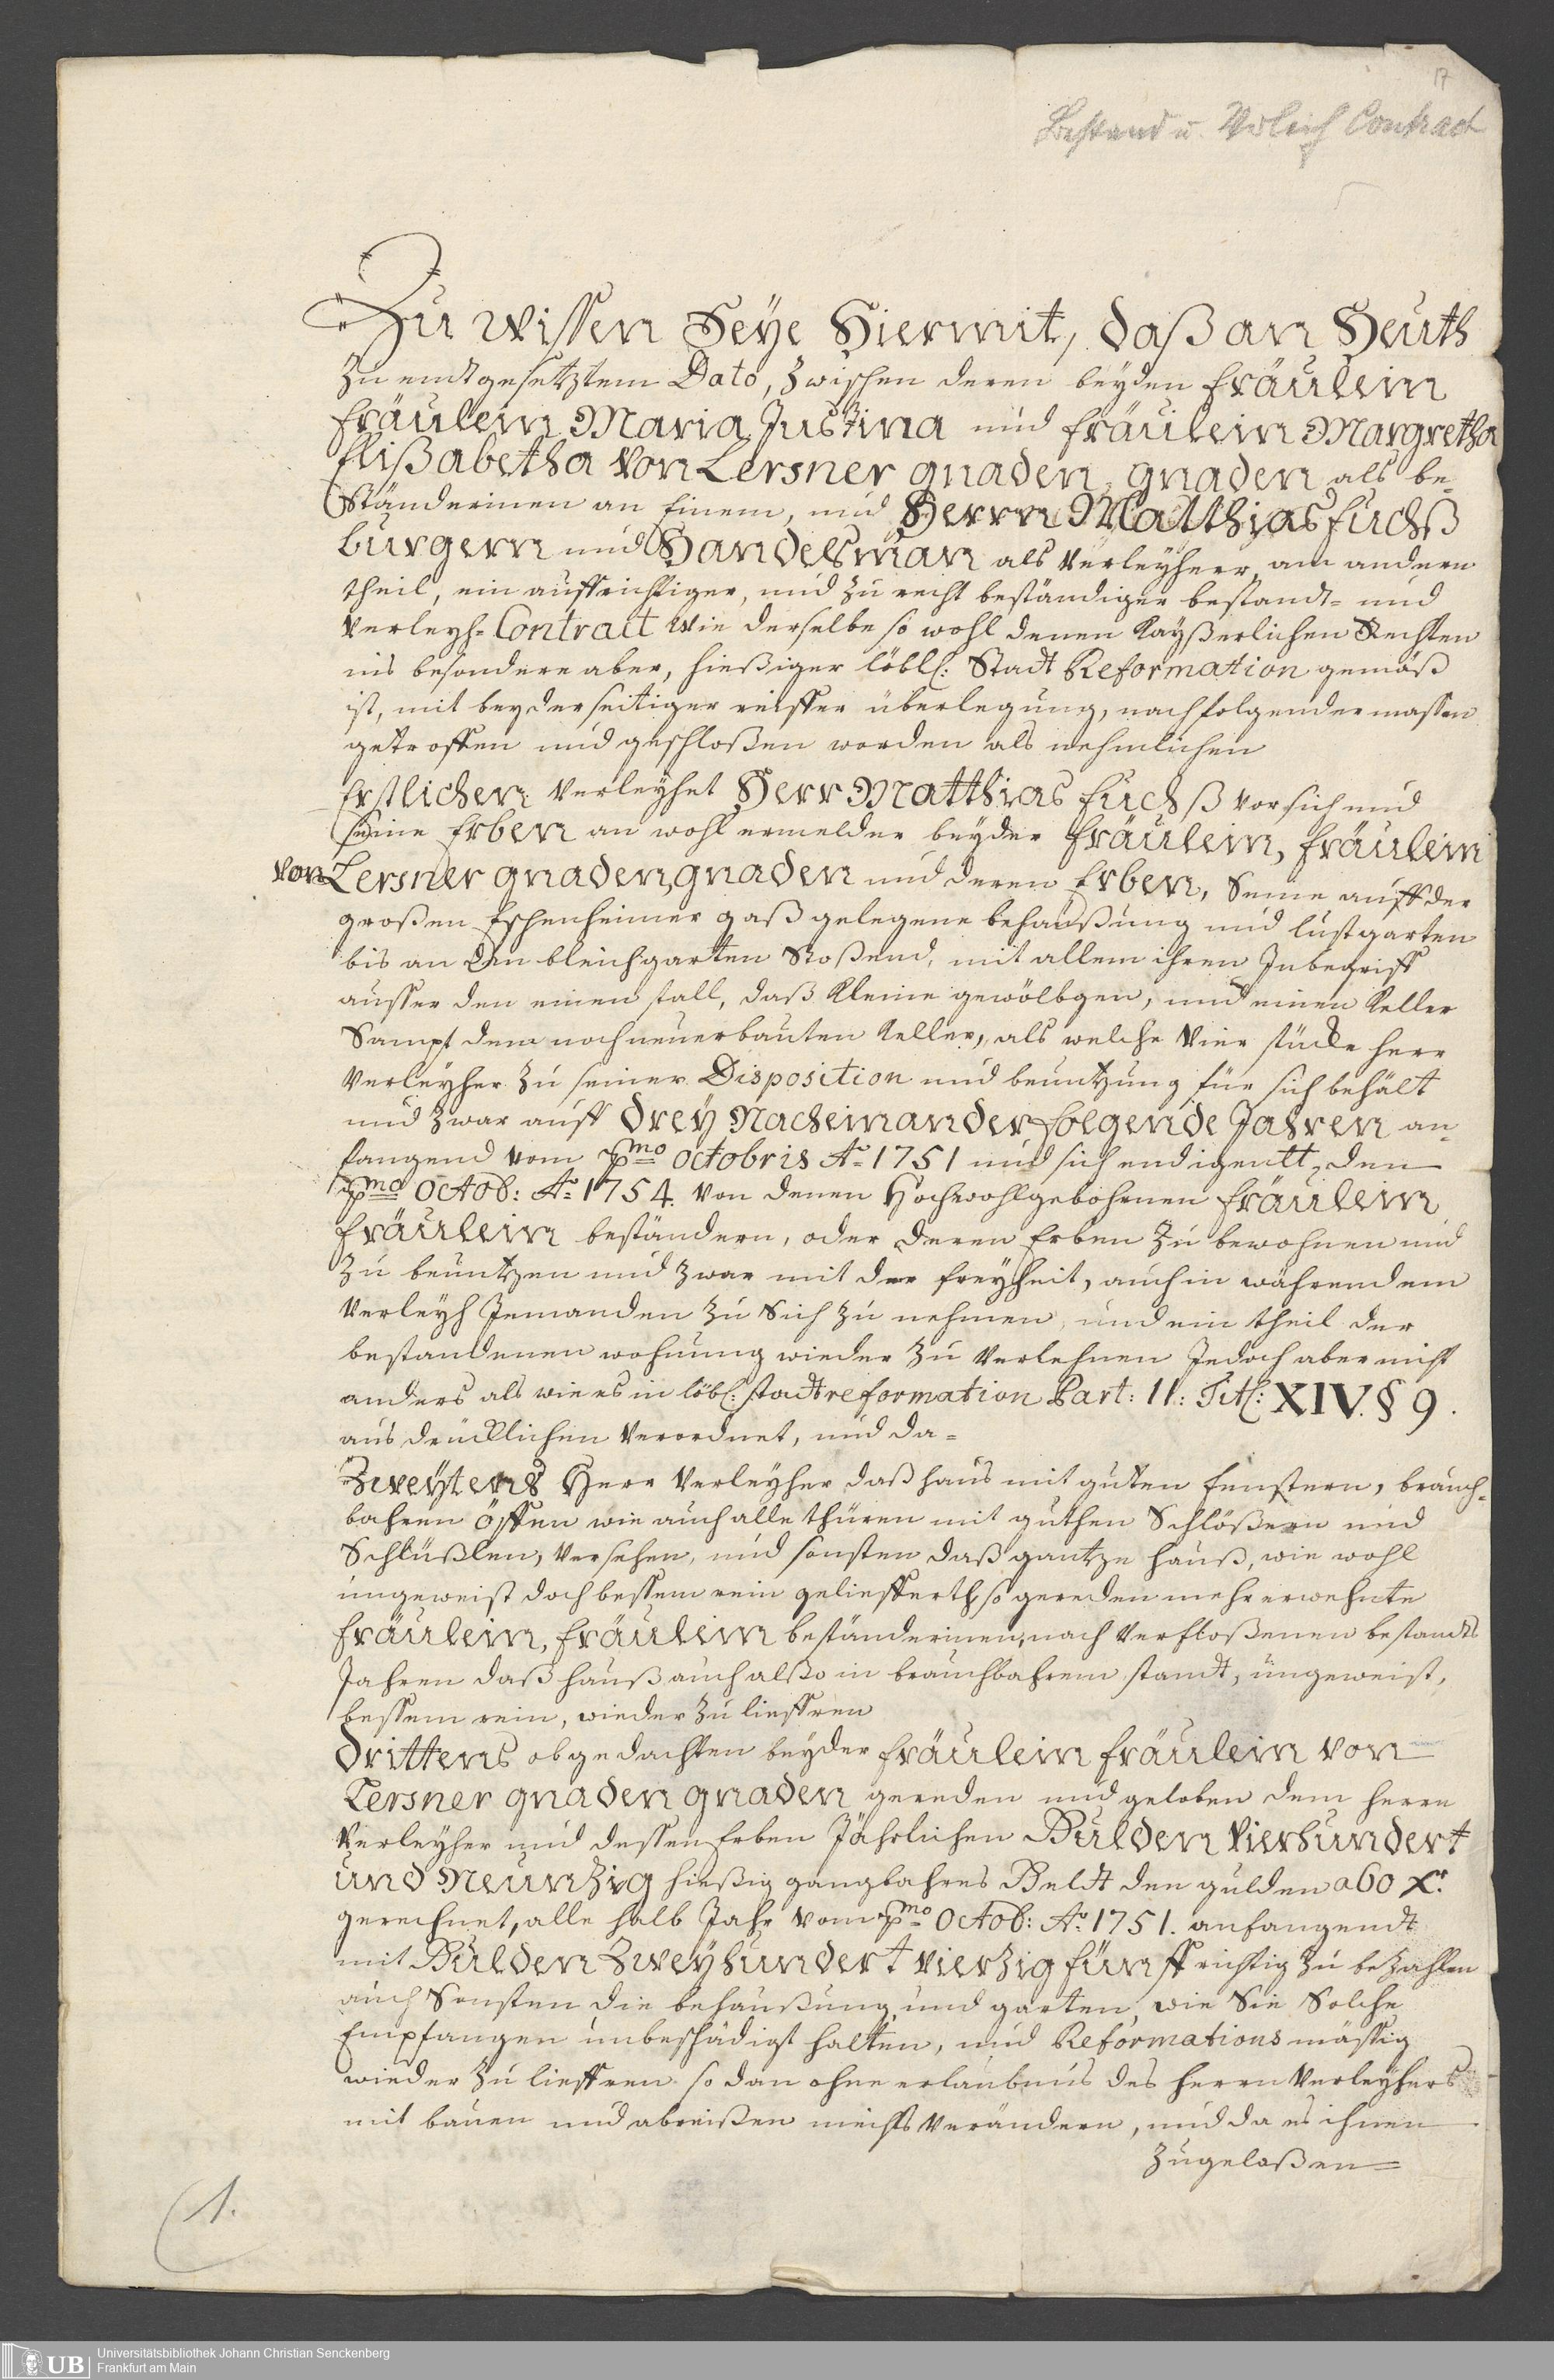 17
Bestand u. Verleih Contract
Zu wissen Seye Hiermit, daß an Heuth
zu endt gesetztem Dato, zwischen denen beyden Fräulein
Fräulein Maria Justina und Fräulein Margretha
Elißabetha von Lersner gnaden, gnaden als be-
Ständerinen an Einem, und Herrn Matthias Fuchß
burgern und Handelsman als Verleyherr, am andern
theil, ein auffrichtiger, und zu recht beständiger bestandt- und
Verleyh-Contract wie derselbe so wohl denen Kayßerlichen Rechten
ins besondere aber, hießiger löbl: Stadt Reformation gemäß
ist, mit beyderseitiger reiffer überlegung, nachfolgendermassen
getroffen und geschloßen worden als nehmlichen
Erstlichen Verleyhet Herr Matthias Fuchß vor sich und
seine Erben an wohl ermelder beyder Fräulein, Fräulein
von Lersner gnaden, gnaden und deren Erben, Seine auff der
großen Eschenheimer gaß gelegene behaußung und lustgarten
bis an den bleichgarten Stoßend, mit allem ihren Inbegriff
ausser den einen stall, daß Kleine gewölbgen, und einen Keller
Sampt dem noch neuerbauten Keller, als welche Vier stücke herr
Verleyher zu seiner Disposition und benutzung für sich behält
und zwar auff drey Nacheinander folgende Jahren an-
fangend vom pmo octobris Ao 1751 und sich endigentt, den
pmo Octob: Ao 1754. von denen Hochwohlgebohrnen Fräulein
Fräulein beständern, oder deren Erben zu bewohnen und
zu benutzen und zwar mit der freyheit, auch in währendem
Verleyh Jemanden zu Sich zu nehmen, und ein theil der
bestandenen wohnung wieder zu Verlehnen Jedoch aber nicht
anders als wie es in löbl: stadt reformation Part: II: Titl: XIV. § 9.
ausdrücklichen Verordnet, und da=
Zweytens Herr Verleyher daß haus mit guten fenstern, brauch-
bahren öffen wie auch alle thüren mit guthen Schlößern und
Schlüßlen, Versehen, und sonsten daß gantze hauß, wie wohl
ungeweist doch bessem rein geliefferth, so gereden mehr erwehnte
Fräulein, Fräulein beständerinen, nach Verfloßenen bestandts
Jahren daß hauß auch alßo in brauchbahrem standt, ungeweist,
bessem rein, wieder zu lieffren
Drittens obgedachten beyder Fräulein Fräulein von
Lersner gnaden gnaden gereden und geloben dem herrn
Verleyher und dessen Erben Jährlichen Gulden Vierhundert
und Neunzig hießig gangbahres Geldt den gulden a 60 xr.
gerechnet, alle halb Jahr vom pmo Octob: Ao. 1751. anfangendt
mit Gulden Zweyhundert vierzig fünff richtig zu bezahlen
auch Sonsten die behaußung und garten, wie Sie Solche
Empfangen unbeschädigt halten, und Reformations mässig
wieder zu lieffren so dan ohne erlaubnus des herrn Verleyhers
mit bauen und abreißen nichts Verändern, und da es ihnen
zugelaßen=
1.
Universitätsbibliothek Johann Christian Senckenberg
Frankfurt am Main
UB